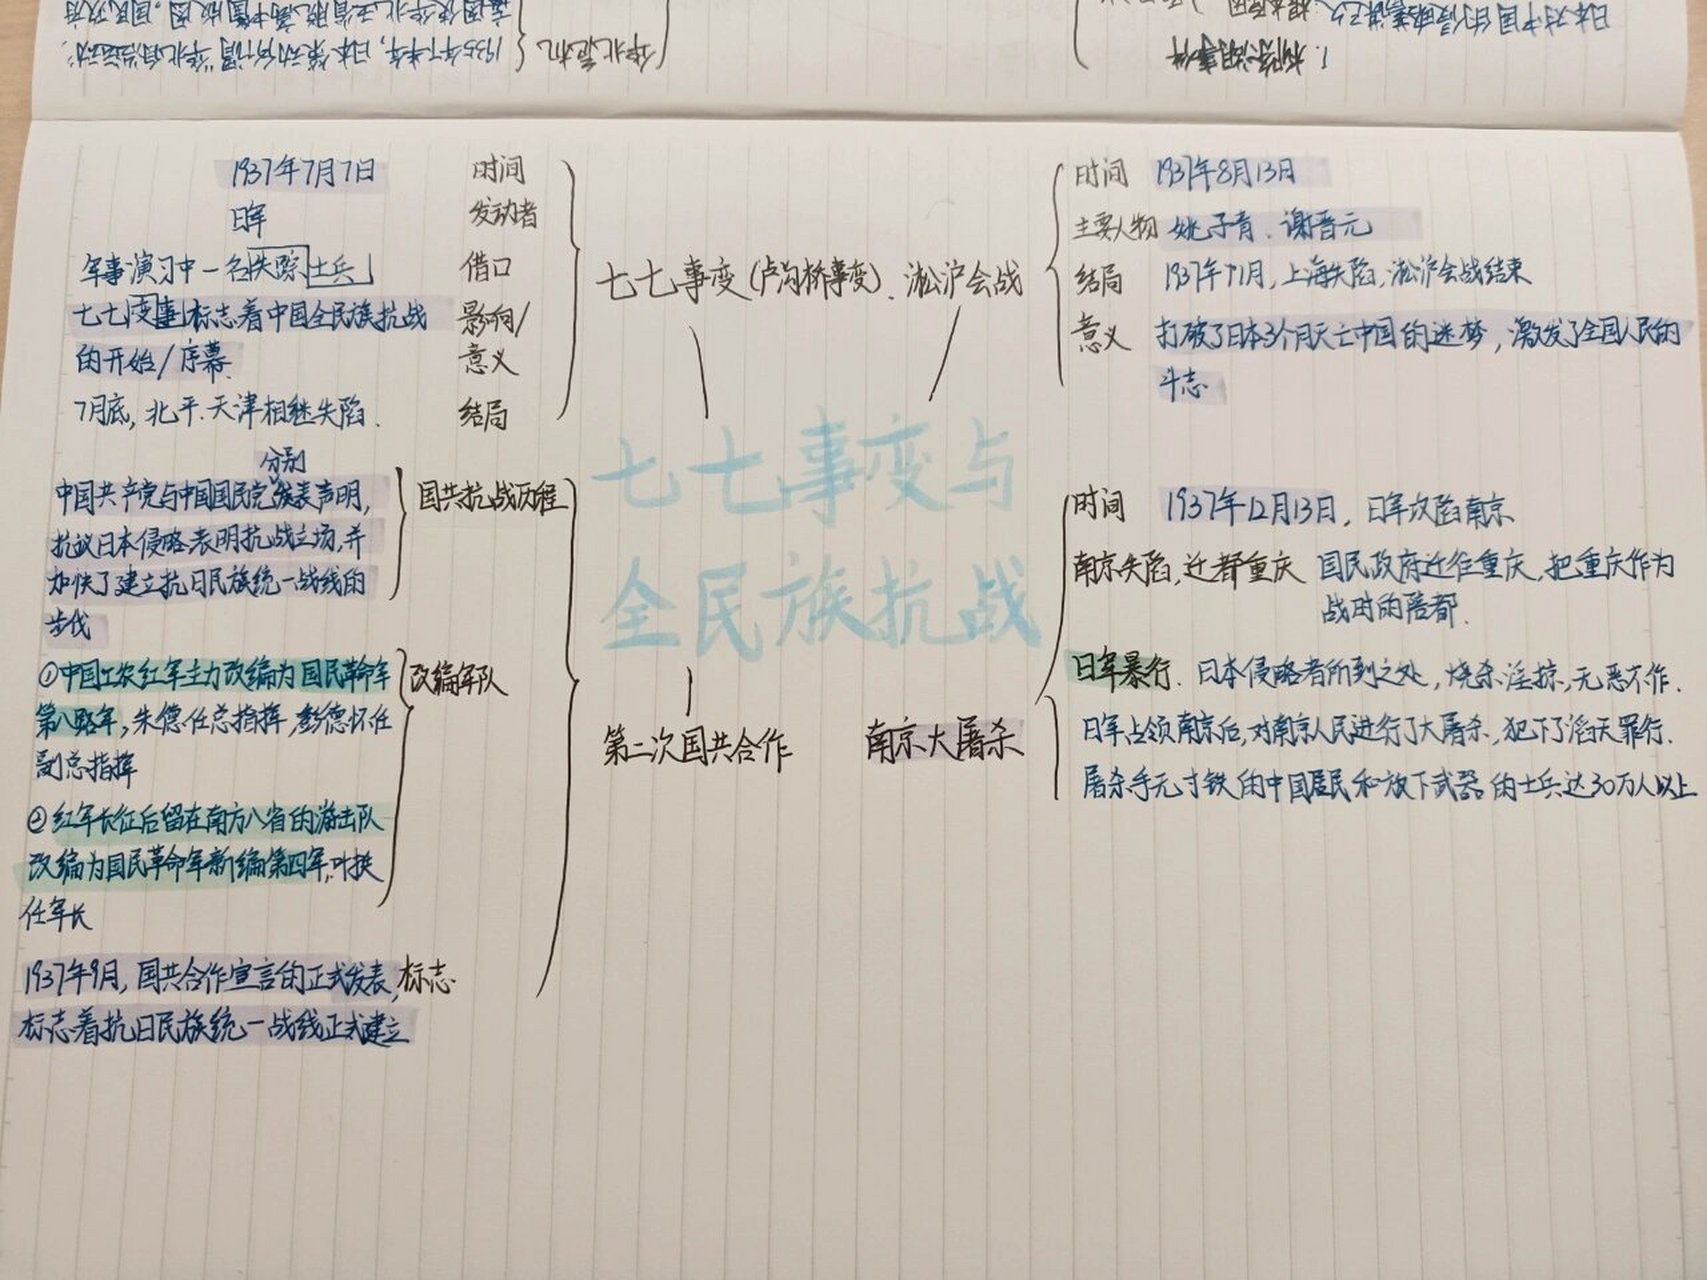 1935年下半年,日本策动所谓"华北自治运动",
华北危机
1. 柳条湖事件
日本对中国的侵略蓄谋已久
七七事变与
全民族抗战
七七事变(卢沟桥事变).
时间
1937年7月7日
发动者
日军
借口
军事演习中一名失踪士兵
影响/
意义
七七变事标志着中国全民族抗战
的开始/序幕.
结局
7月底, 北平.天津相继失陷.
淞沪会战
时间 1937年8月13日
主要人物 姚子青. 谢晋元
结局 1937年11月, 上海失陷, 淞沪会战结束
意义 打破了日本3个月灭亡中国的迷梦, 激发了全国人民的
斗志.
第二次国共合作
国共抗战历程
分别
中国共产党与中国国民党发表声明,
抗议日本侵略.表明抗战立场,并
加快了建立抗日民族统一战线的
步伐
改编军队
①中国工农红军主力改编为国民革命军
第八路军,朱德任总指挥,彭德怀任
副总指挥
②红军长征后留在南方八省的游击队
改编为国民革命军新编第四军,叶挺
任军长
标志
1937年9月, 国共合作宣言的正式发表,
标志着抗日民族统一战线正式建立
南京大屠杀
时间 1937年12月13日, 日军攻陷南京
南京失陷,迁都重庆 国民政府迁往重庆,把重庆作为
战时的陪都.
日军暴行. 日本侵略者所到之处, 烧杀淫掠,无恶不作.
日军占领南京后,对南京人民进行了大屠杀,犯下了滔天罪行.
屠杀手无寸铁的中国居民和放下武器的士兵达30万人以上